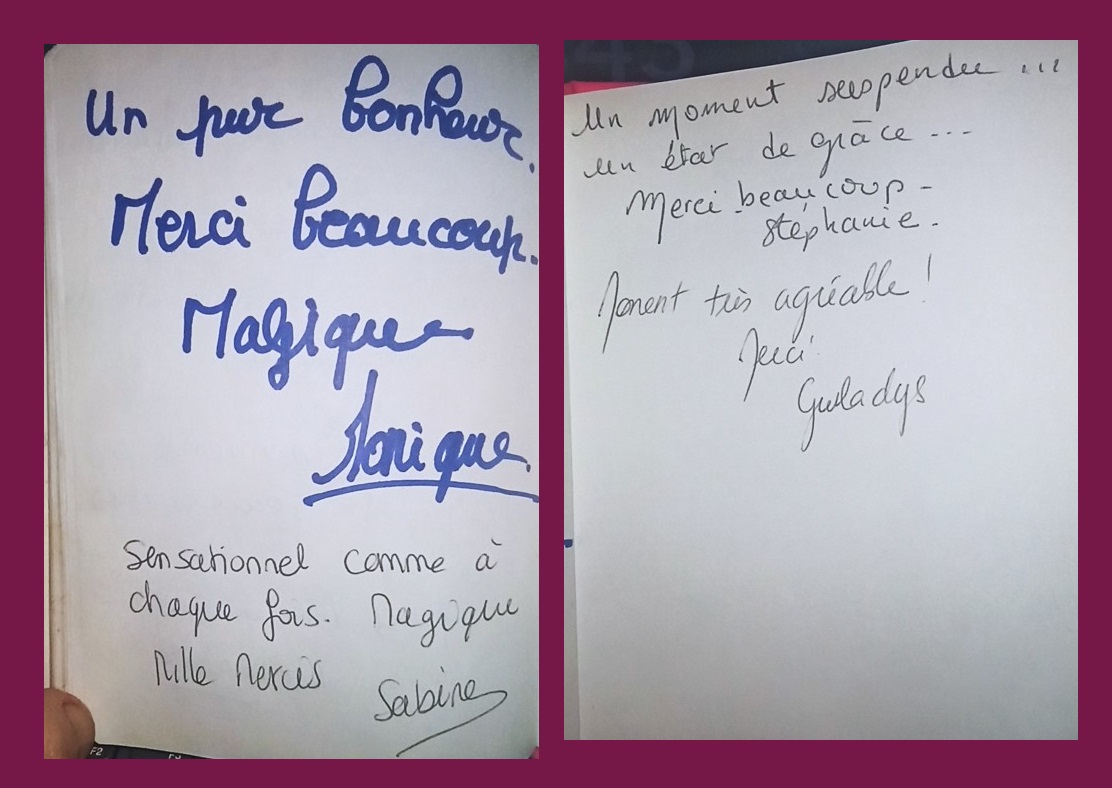 Un pur bonheur.
Merci beaucoup.
Magique
Monique.
Sensationnel comme à
chaque fois. Magique
Mille Mercis
Sabine
F2
F3
Un moment suspendu ...
un état de grâce ...
Merci beaucoup -
Stéphanie.
Moment très agréable !
Merci
Gwladys